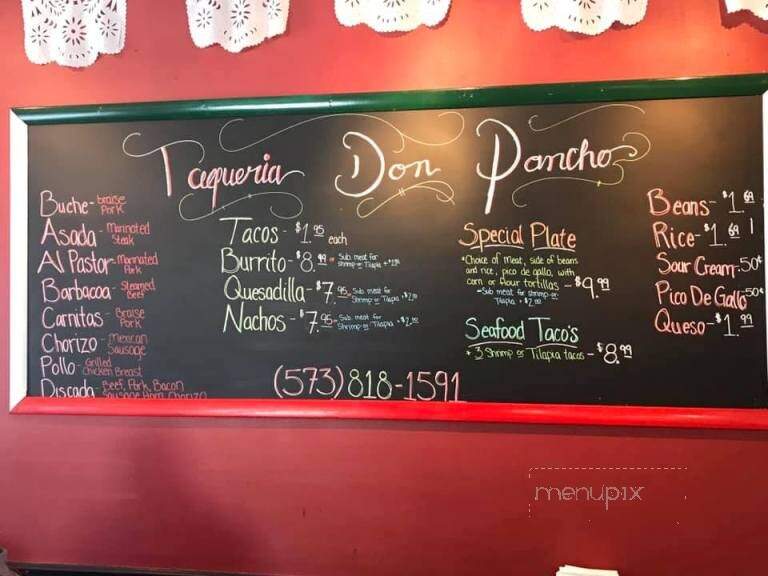 Taqueria Don Pancho
Buche - braise
Pork
Asada - Marinated
Steak
Al Pastor - Marinated
Pork
Barbacoa - Steamed
Beef
Carnitas - Braise
Pork
Chorizo - Mexican
Sausage
Pollo - Grilled
Chicken Breast
Discada - Beef, Pork, Bacon
Sausage Ham, Chorizo
Tacos - $1.95 each
Burrito - $8.99 - Sub. meat for
Shrimp or Tilapia +
Quesadilla - $7.95 - Sub. meat for
Shrimp or Tilapia + $2.00
Nachos - $7.95 - Sub. meat for
Shrimp or Tilapia + $2.00
(573) 818-1591
Special Plate
*Choice of Meat, side of beans
and rice, pico de gallo, with
corn or flour tortillas - $9.99
- Sub meat for shrimp or
Tilapia + $2.00
Seafood Taco's
+ 3 Shrimp or Tilapia tacos - $8.99
Beans - $1.69
Rice - $1.69
Sour Cream - 50¢
Pico De Gallo - 50¢
Queso - $1.99
menupix